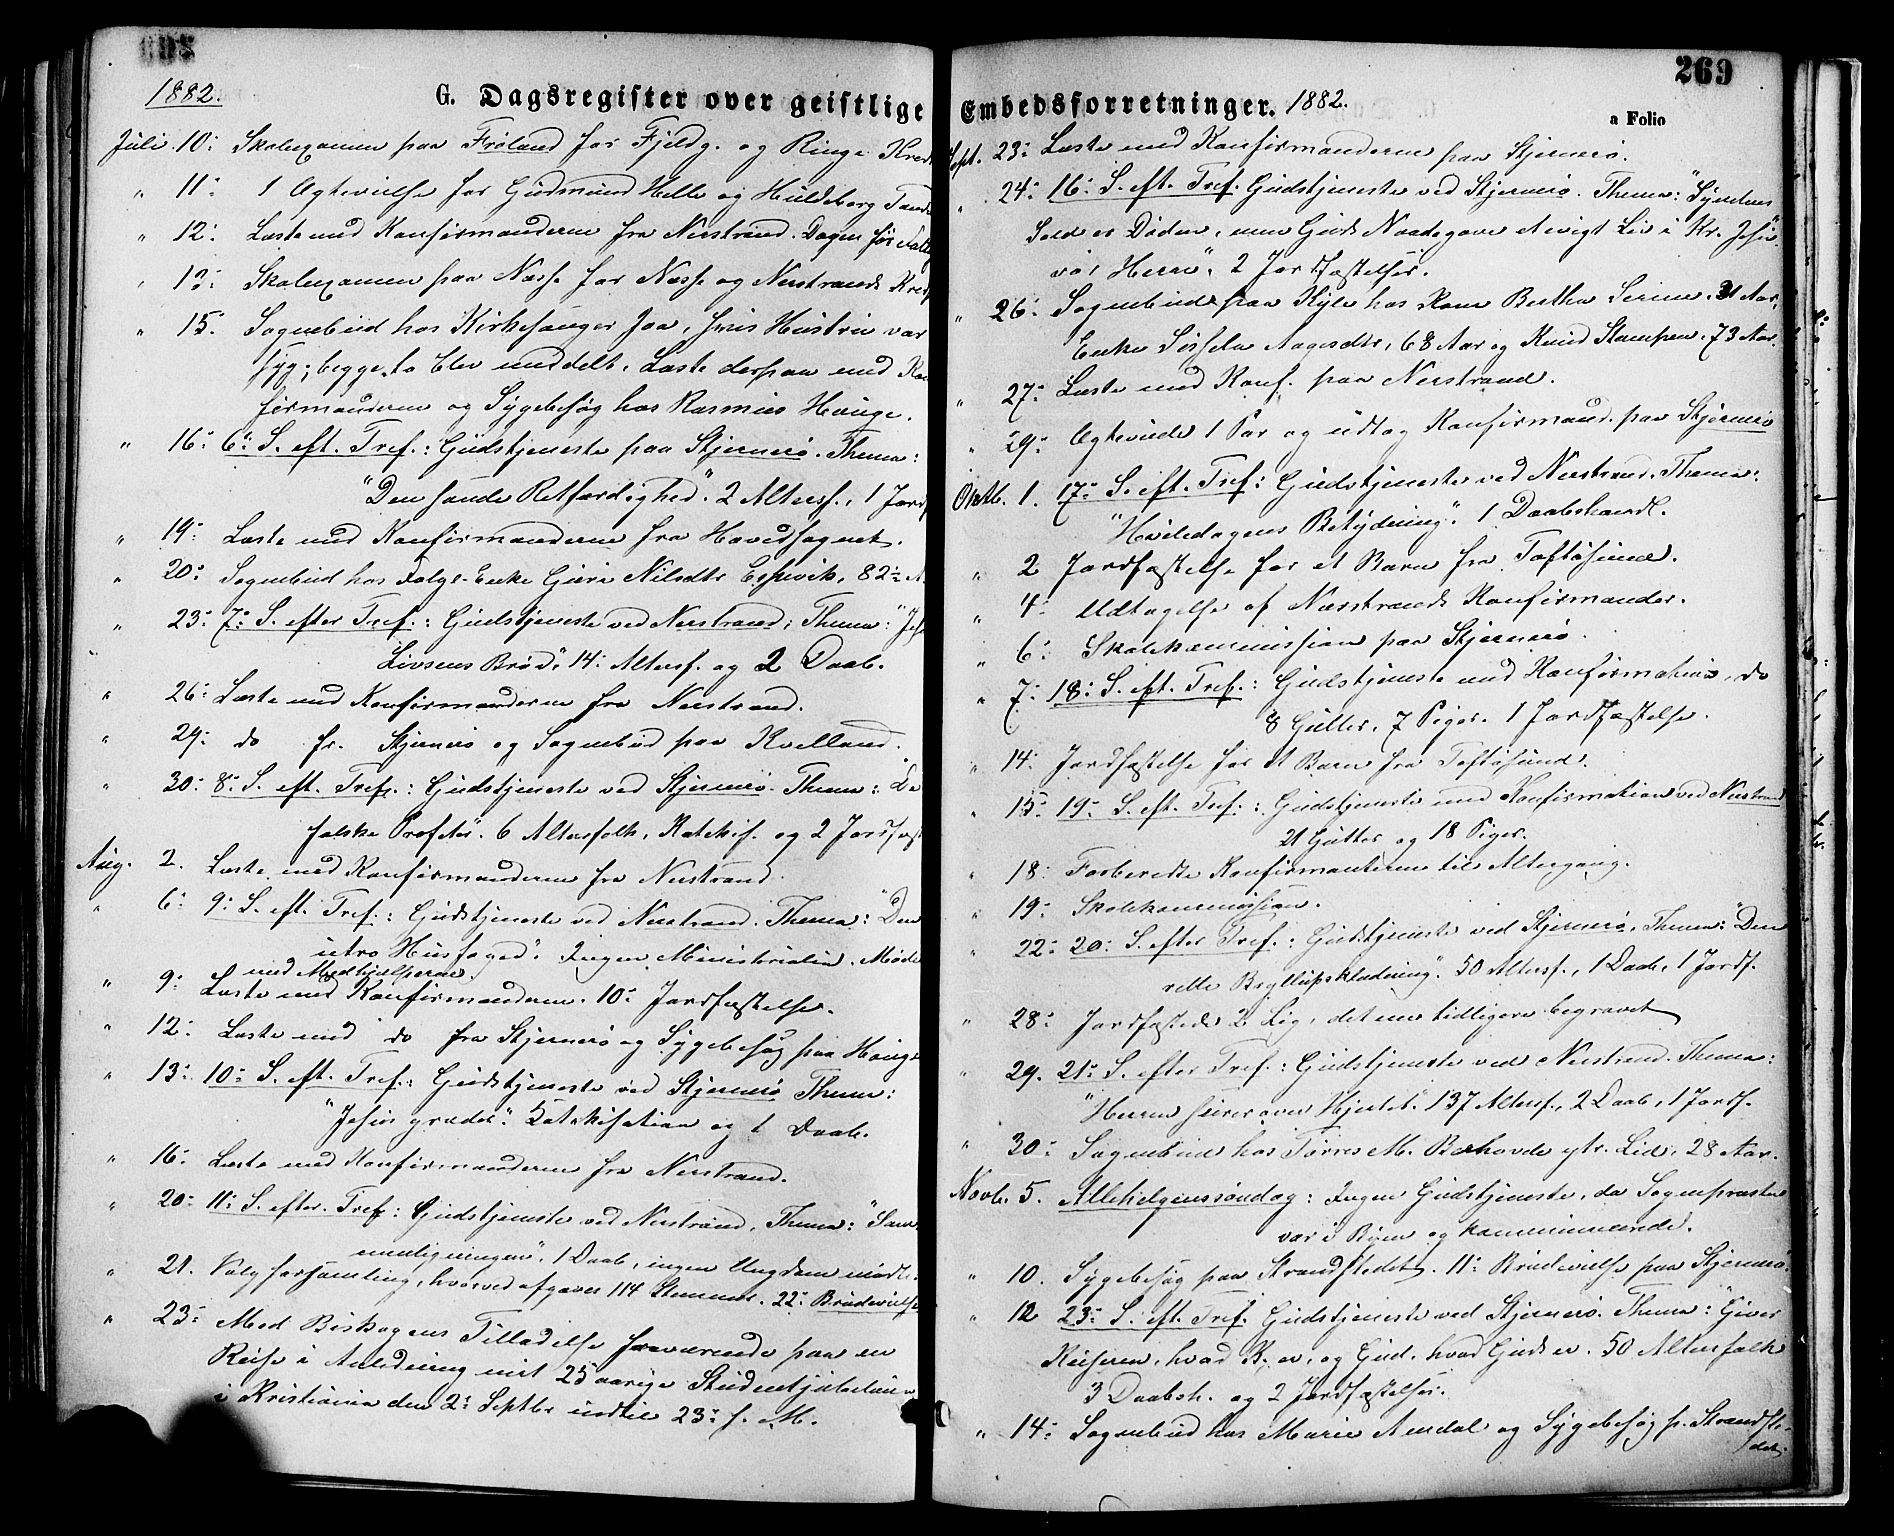 1882.
G. Dagsregister over geistlige
Juli 10: Skolexamen paa Fröland for Fjeldg. og Ringe Kreds
" 11: 1 Ægtevielse for Gudmund Helle og Huldeborg
" 12: Læste med Konfirmanderne fra Nerstrand. Dagen før
" 13: Skolexamen paa Næsse for Næsse og Nerstrands Kreds
" 15. Sognebud hos Kirkesanger Joa, hvis Hustru var
syg; begge to blev meddelt. Læste derpaa med Kon
firmanderne og Sygebesøg hos Rasmus Hauge.
" 16: 6: S. eft. Tref.: Gudstjeneste paa Stjernerö. Thema:
"Den sande Retfærdighed". 2 Altersf., 1 Jordf
" 19: Læste med Konfirmanderne fra Hovedsognet.
" 20: Sognebud hos Enke Guri Nilsdtr Espevik, 82½ A.
" 23: 7: S. efter Tref.: Gudstjeneste ved Nerstrand; Thema: "Jesu
Livsens Brød". 14 Altersf. og 2 Daab.
" 26: Læste med Konfirmanderne fra Nerstrand.
" 29: do fr. Stjernerö og Sognebud paa Kvelland.
" 30: 8: S. eft. Tref.: Gudstjeneste ved Stjernerö. Thema: "De
falske Profeter". 6 Altersfolk, Katekis. og 2 Jordfæst
Aug. 2. Læste med Konfirmanderne fra Nerstrand.
" 6: 9: S. eft. Tref.: Gudstjeneste ved Nerstrand. Thema: "Den
utro Husfoged". Ingen Ministerialia. Møde
med Medhjælperne.
" 9: Læste med Konfirmanderne. 10: Jordfæstelse.
" 12: Læste med do fra Stjernerö og Sygebesøg paa Hauge
" 13: 10: S. eft. Tref.: Gudstjeneste ved Stjernerö Thema:
"Jesus græder". Katekisation og 1 Daab.
" 16: Læste med Konfirmanderne fra Nerstrand.
" 20: 11: S. efter. Tref.: Gudstjeneste ved Nerstrand, Thema: "Sam
menligningen". 1 Daab, ingen Ungdom mødte.
" 21. Valgforsamling, hvorved afgaves 114 Stemmer. 22: Brudevielse
" 23: Med Biskopens Tilladelse fraværende paa en
Reise i Anledning mit 25 aarige Studentjubilæum
i Kristiania den 2: Septbr indtil 23: s. M.
269
Embedsforretninger. 1882.
a Folio
Sept. 23: Læste med Konfirmanderne paa Stjernerö.
" 24: 16: S. eft. Tref. Gudstjeneste ved Stjernerö. Thema: "Syndens
Sold er Døden, men Guds Naadegave et evigt Liv i Kr. Jesu
vor Herre". 2 Jordfæstelser.
" 26: Sognebud paa Kyle hos Kone Bertha Serine, 31 Aar,
Enke Sissela Aagesdtr, 68 Aar og Knud Stampen, 73 Aar.
" 27: Læste med Konf. paa Nerstrand.
" 29: Ægteviede 1 Par og udtog Konfirmand. paa Stjernerö
Oktb. 1. 17: S. eft. Tref.: Gudstjeneste ved Nerstrand. Thema:
"Hviledagens Betydning". 1 Daabshandl.
" 2 Jordfæstelse for et Barn fra Toftösund.
" 4: Udtagelse af Nærstrands Konfirmander.
" 6: Skolekommission paa Stjernerö.
" 7: 18: S. eft. Tref.: Gudstjeneste med Konfirmation, do
8 Gutter, 7 Piger. 1 Jordfæstelse.
" 14: Jordfæstelse for et Barn fra Toftösund.
" 15: 19: S. eft. Tref.: Gudstjeneste med Konfirmation ved Nerstrand
21 Gutter og 18 Piger.
" 18: Forberedte Konfirmanterne til Altergang.
" 19: Skolekommission.
" 22: 20: S. efter Tref.: Gudstjeneste ved Stjernerö, Thema: "Den
rette Bryllupsklædning". 50 Altersf., 1 Daab, 1 Jordf.
" 28: Jordfæstede 2 Lig, det ene tidligere begravet
" 29. 21: S. efter Tref.: Gudstjeneste ved Nerstrand. Thema:
"Herren seirer over Hjertet". 137 Altersf., 2 Daab, 1 Jordf.
" 30: Sognebud hos Torres M. Berhovde ytr. Lid, 28 Aar.
Novb. 5. Allehelgenssöndag: Ingen Gudstjeneste, da Sognepræsten
var i Byen og kommunicerede.
" 10. Sygebesøg paa Strandstedet. 11: Brudevielse paa Stjernerö.
" 12 23: S. eft. Tref. Gudstjeneste ved Stjernerö. Thema: "Giver
Keiseren, hvad K. er, og Gud, hvad Guds er. 50 Altersfolk
3 Daabsh. og 2 Jordfæstelser.
" 14: Sognebud hos Marie Amdal og Sygebesøg p. Strandste-
det.